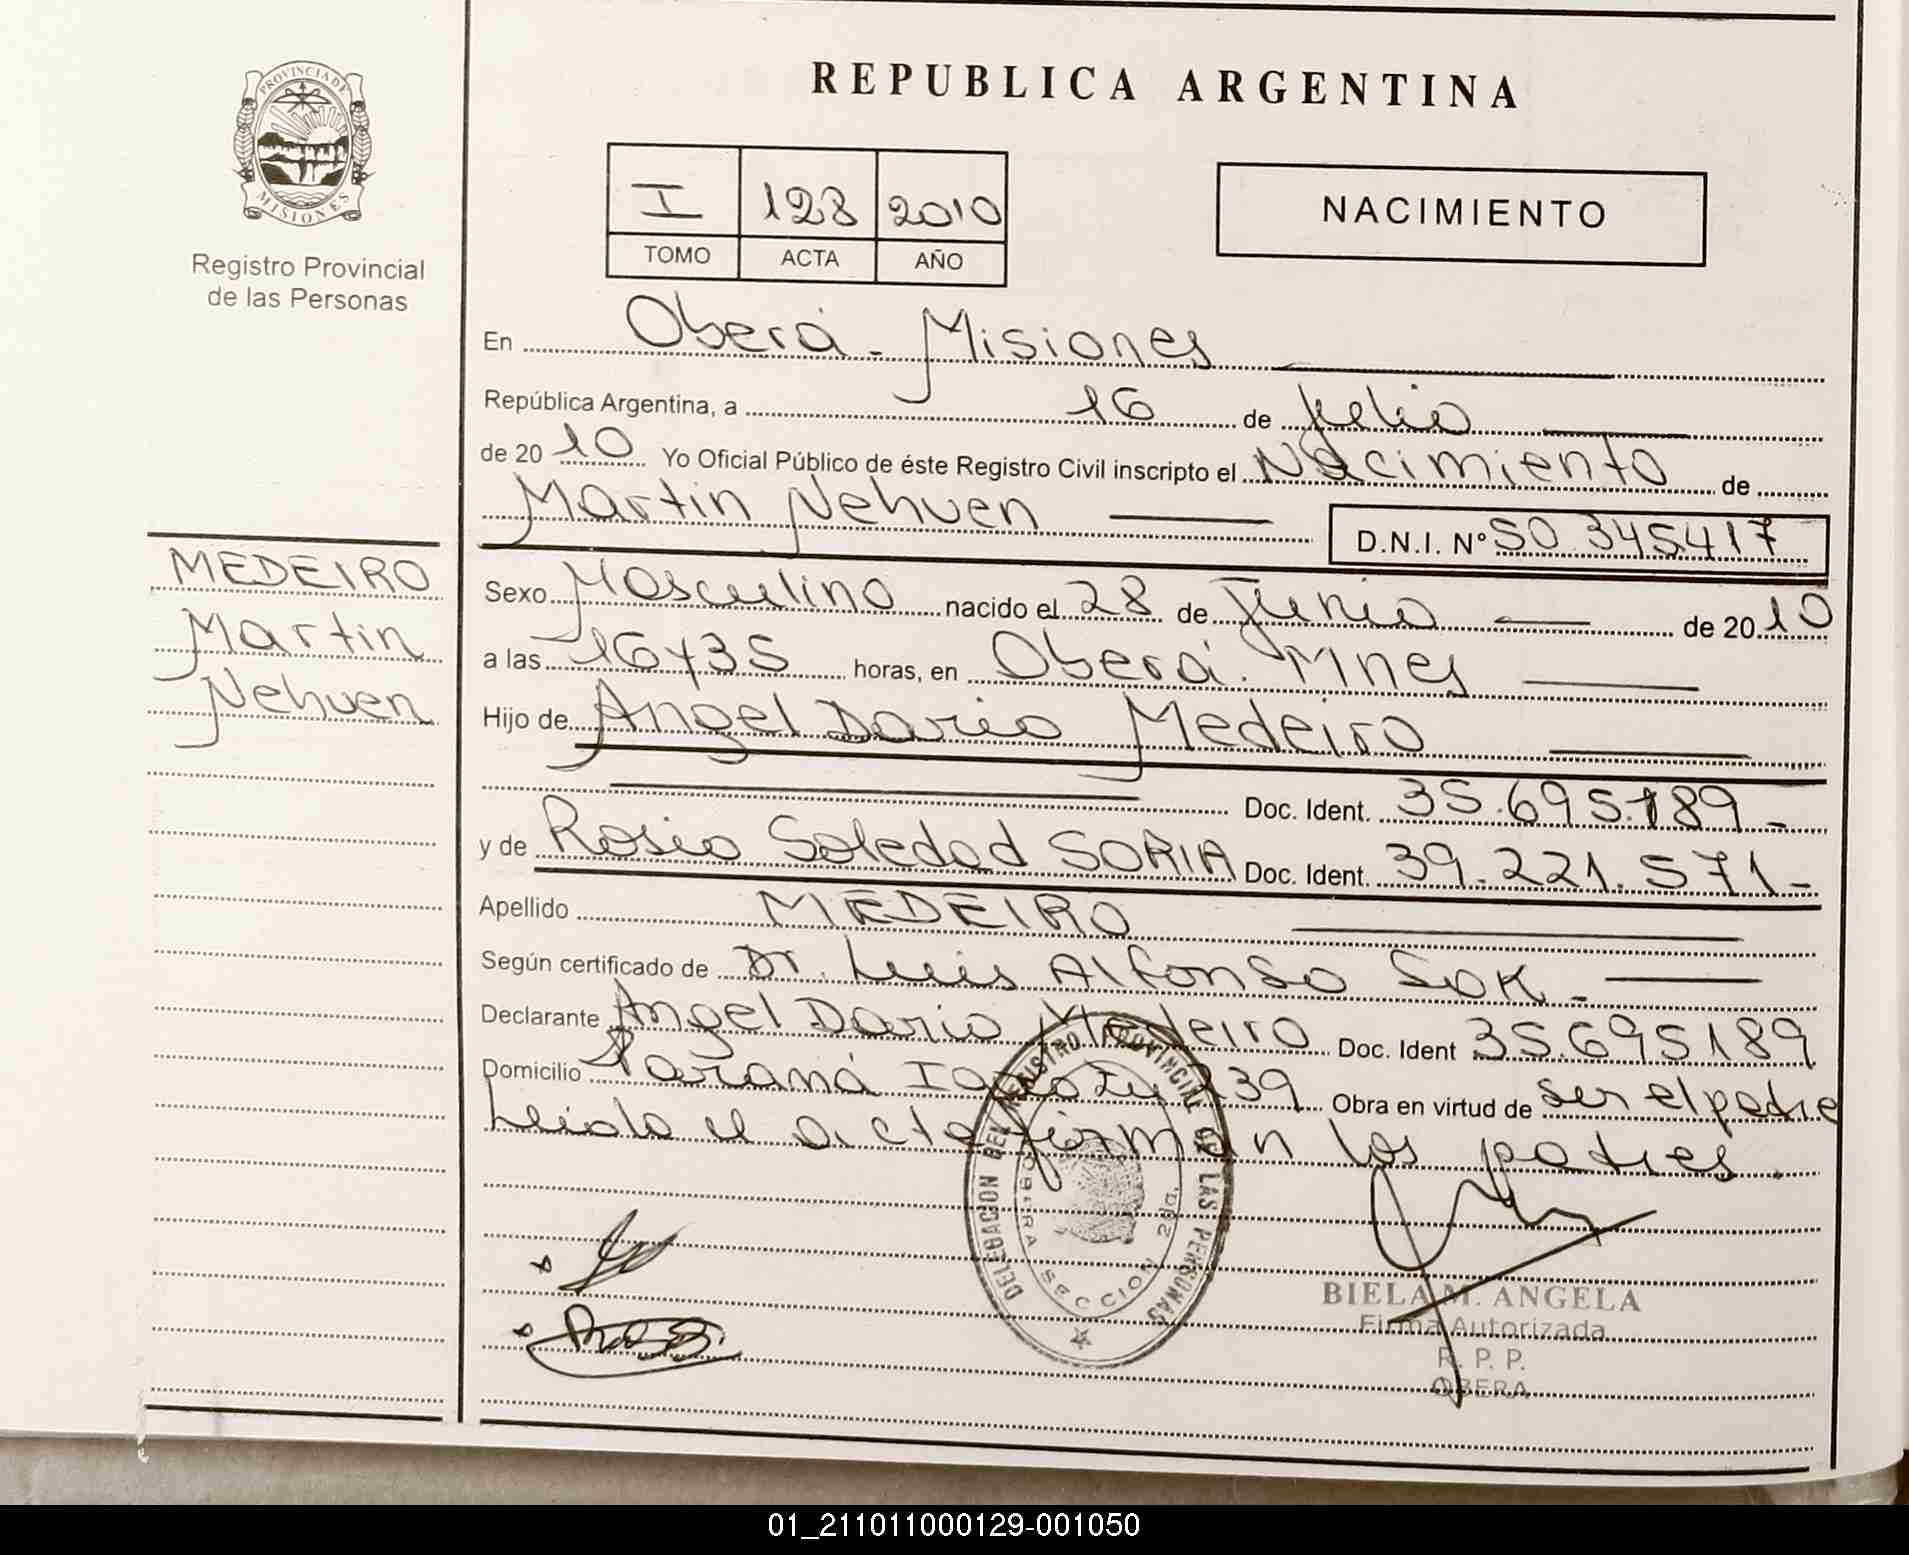 REPUBLICA ARGENTINA
PROVINCIA DE
MISIONES
Registro Provincial
de las Personas
I 128 2010
TOMO ACTA AÑO
NACIMIENTO
En Oberá - Misiones
República Argentina, a 16 de julio
de 20 10 Yo Oficial Público de éste Registro Civil inscripto el Nacimiento de
Martin Nehuen D.N.I. Nº 50 345417
MEDEIRO
Martin
Nehuen
Sexo Masculino nacido el 28 de Junio de 20 10
a las 16 y 35 horas, en Oberá. Mnes
Hijo de Angel Dario Medeiro
Doc. Ident. 35.695.189 -
y de Rosio Soledad SORIA Doc. Ident. 39.221.571 -
Apellido MEDEIRO
Según certificado de Dr. Luis Alfonso SOK -
Declarante Angel Dario Medeiro Doc. Ident 35.695189
Domicilio Paraná 239 Obra en virtud de ser el padre
Leida el acta firman los padres.
DELEGACION DEL REGISTRO PROVINCIAL DE LAS PERSONAS
OBERA SECCION 2da.
BIELA M. ANGELA
Firma Autorizada
R. P. P.
OBERA
01_211011000129-001050